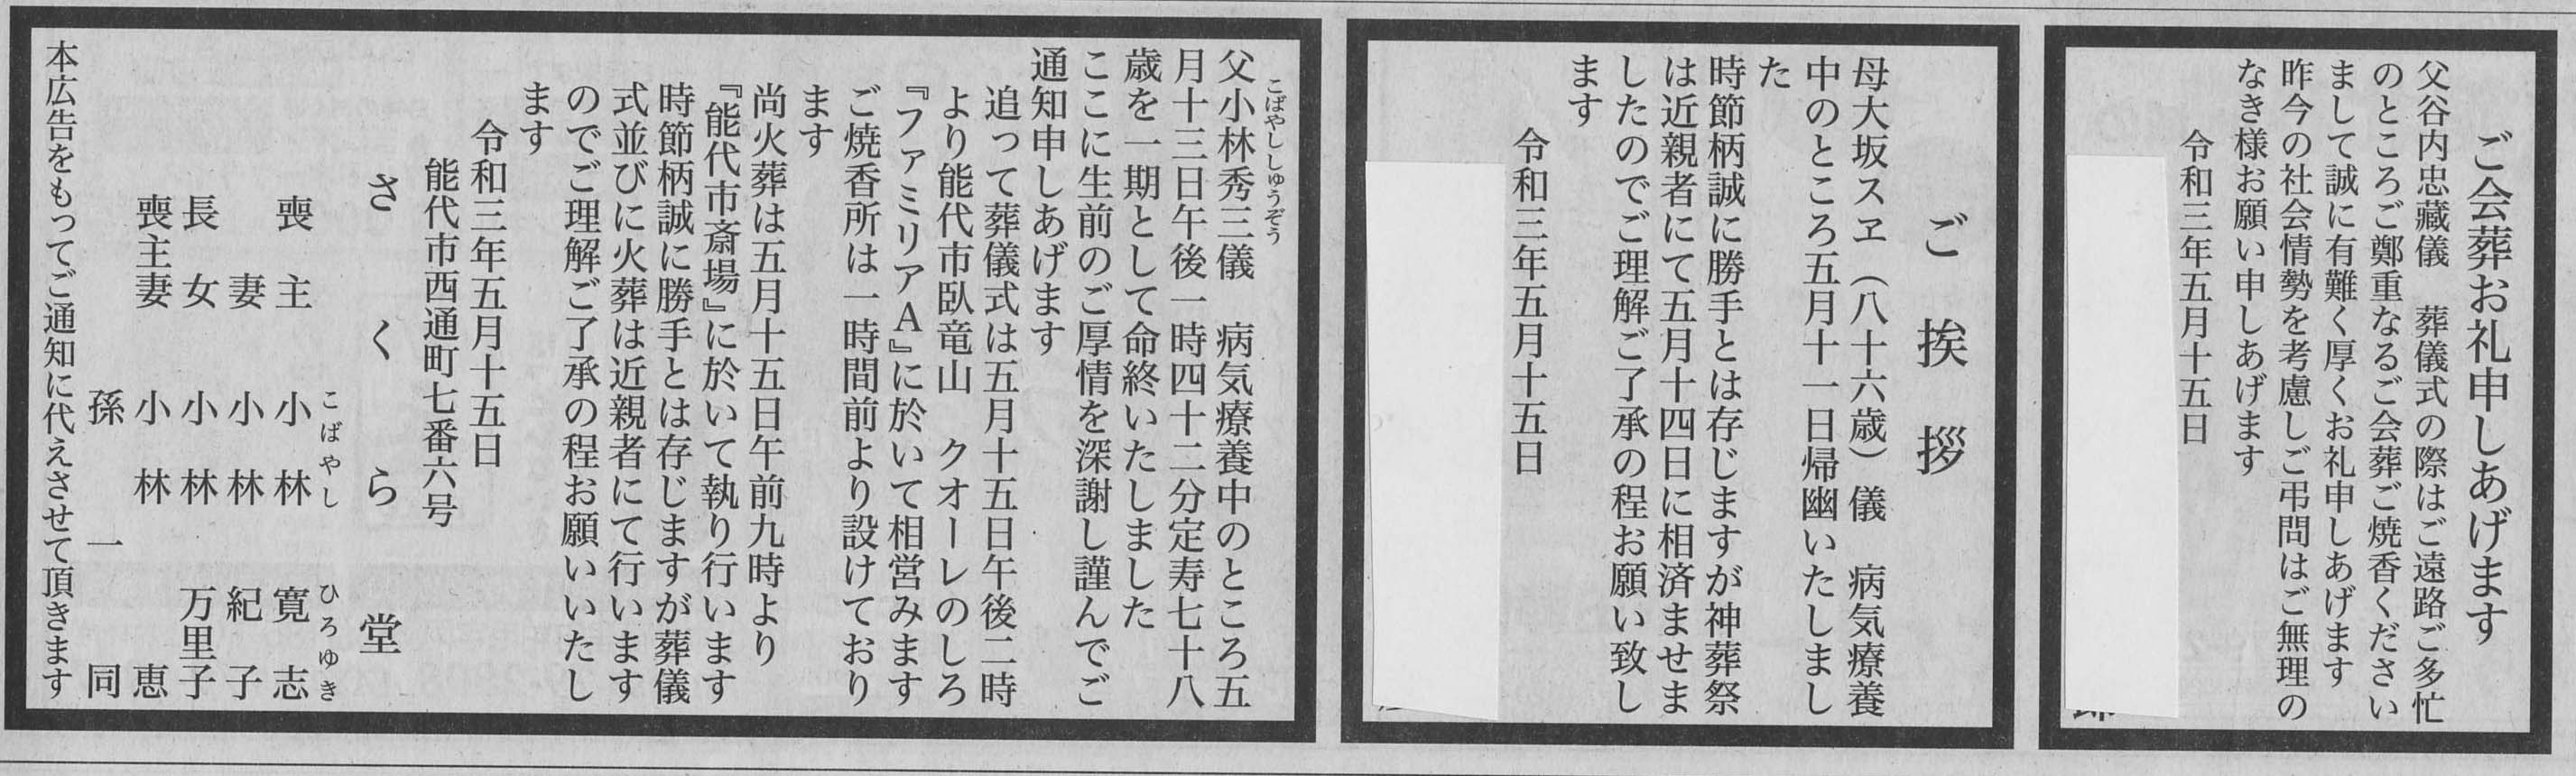 ご会葬お礼申しあげます
父谷内忠藏儀　葬儀式の際はご遠路ご多忙
のところご鄭重なるご会葬ご焼香ください
まして誠に有難く厚くお礼申しあげます
昨今の社会情勢を考慮しご弔問はご無理の
なき様お願い申しあげます
令和三年五月十五日
ご挨拶
母大坂スヱ（八十六歳）儀　病気療養
中のところ五月十一日帰幽いたしまし
た
時節柄誠に勝手とは存じますが神葬祭
は近親者にて五月十四日に相済ませま
したのでご理解ご了承の程お願い致し
ます
令和三年五月十五日
こばやししゅうぞう
父小林秀三儀　病気療養中のところ五
月十三日午後一時四十二分定寿七十八
歳を一期として命終いたしました
ここに生前のご厚情を深謝し謹んでご
通知申しあげます
追って葬儀式は五月十五日午後二時
より能代市臥竜山　クオーレのしろ
『ファミリアA』に於いて相営みます
ご焼香所は一時間前より設けており
ます
尚火葬は五月十五日午前九時より
『能代市斎場』に於いて執り行います
時節柄誠に勝手とは存じますが葬儀
式並びに火葬は近親者にて行います
のでご理解ご了承の程お願いいたし
ます
令和三年五月十五日
能代市西通町七番六号
さくら堂
こばやし　ひろゆき
喪主　小林　寛志
妻　小林　紀子
長女　小林　万里子
喪主妻　小林　恵
孫　一同
本広告をもってご通知に代えさせて頂きます